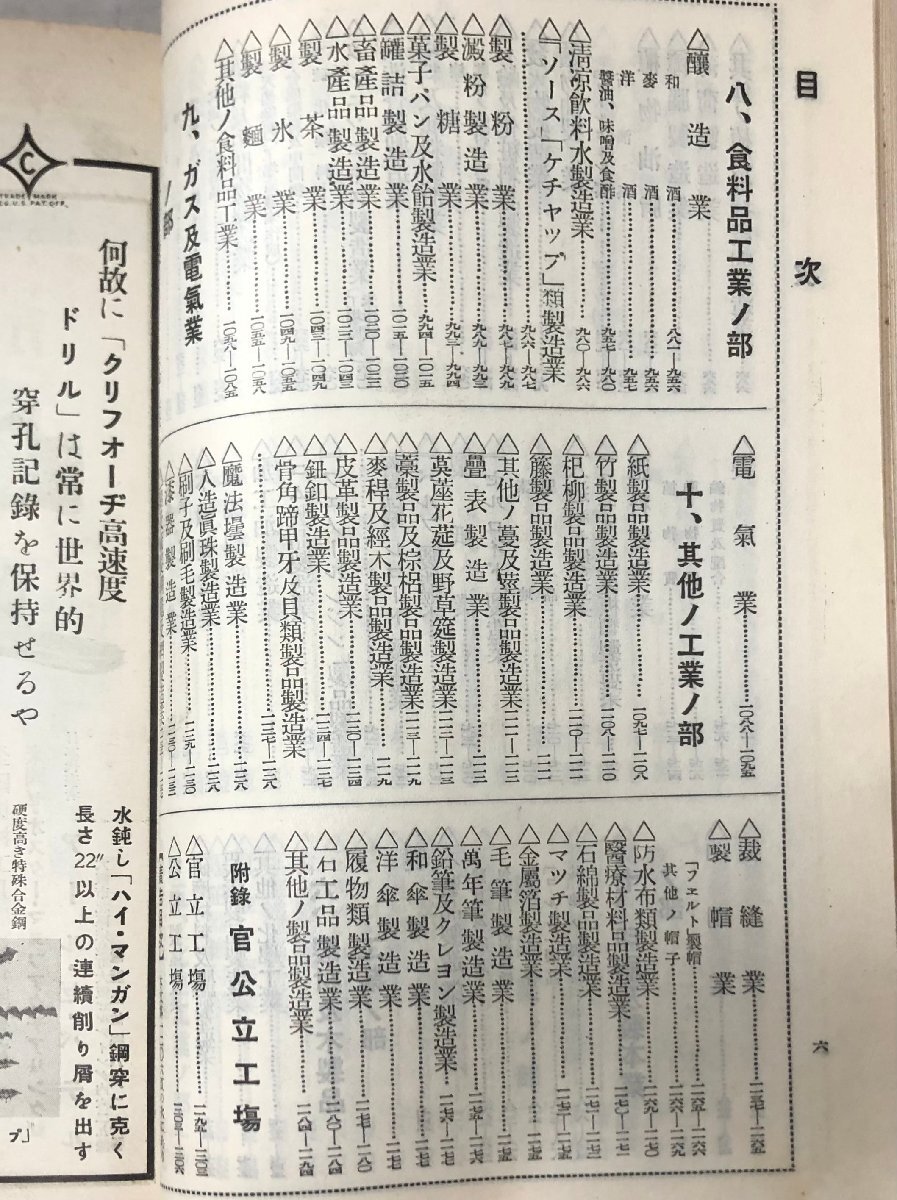 目次
八、食料品工業ノ部
△釀造業
和酒……八八一—九五六
麥酒……九五六
洋酒……九五七
醬油、味噌及食酢……九五七—九八〇
△淸凉飮料水製造業……九八〇—九八六
△「ソース」「ケチャップ」類製造業
……九八六—九八七
△製粉業……九八七—九八八
△澱粉製造業……九八八—九九二
△製糖業……九九二—九九四
△菓子パン及水飴製造業……九九四—一〇一五
△罐詰製造業……一〇一五—一〇二〇
△畜產品製造業……一〇二〇—一〇二二
△水產品製造業……一〇二二—一〇四二
△製茶業……一〇四二—一〇四九
△製氷業……一〇四九—一〇五五
△製麵業……一〇五五—一〇五八
△其他ノ食料品工業……一〇五八—一〇八五
九、ガス及電氣業
ノ部
△電氣業……一〇八八—一〇九五
十、其他ノ工業ノ部
△紙製品製造業……一〇九七—一一〇八
△竹製品製造業……一一〇八—一一一〇
△杞柳製品製造業……一一一〇—一一一一
△籐製品製造業……一一一一
△其他ノ蔓及莖製品製造業……一一一一—一一一二
△疊表製造業……一一一二
△茣蓙花莚及野草筵製造業……一一一二—一一一三
△藁製品及棕梠製品製造業……一一一三—一一一九
△麥稈及經木製品製造業……一一一九
△皮革製品製造業……一一二〇—一一二四
△鈕釦製造業……一一二四—一一二七
△骨角蹄甲牙及貝類製品製造業
……一一二七—一一二八
△魔法壜製造業……一一二八
△人造眞珠製造業……一一二八
△刷子及刷毛製造業……一一二九—一一三〇
△漆器製造業
△裁縫業……一一五七—一一六五
△製帽業
「フェルト」製帽……一一六五—一一六六
其他ノ帽子……一一六六—一一六九
△防水布類製造業……一一六九—一一七〇
△醫療材料品製造業……一一七〇—一一七一
△石綿製品製造業……一一七一—一一七二
△マツチ製造業……一一七二—一一七五
△金屬箔製造業……一一七五
△毛筆製造業……一一七五
△萬年筆製造業……一一七五—一一七六
△鉛筆及クレヨン製造業……一一七六—一一七七
△和傘製造業……一一七七
△洋傘製造業……一一七七
△履物類製造業……一一七七—一一八〇
△石工品製造業……一一八〇—一一八四
△其他ノ製品製造業……一一八四—一一九四
附錄 官公立工場
△官立工場……一一九五—一二〇三
△公立工場……一二〇三—一二〇六
六
C
TRADE MARK
REG. U.S. PAT. OFF.
何故に「クリフォーヂ高速度
ドリル」は常に世界的
穿孔記錄を保持せるや
水鈍し「ハイ・マンガン」鋼穿に克く
長さ22″以上の連續削り屑を出す
硬度高き特殊合金鋼
プ」